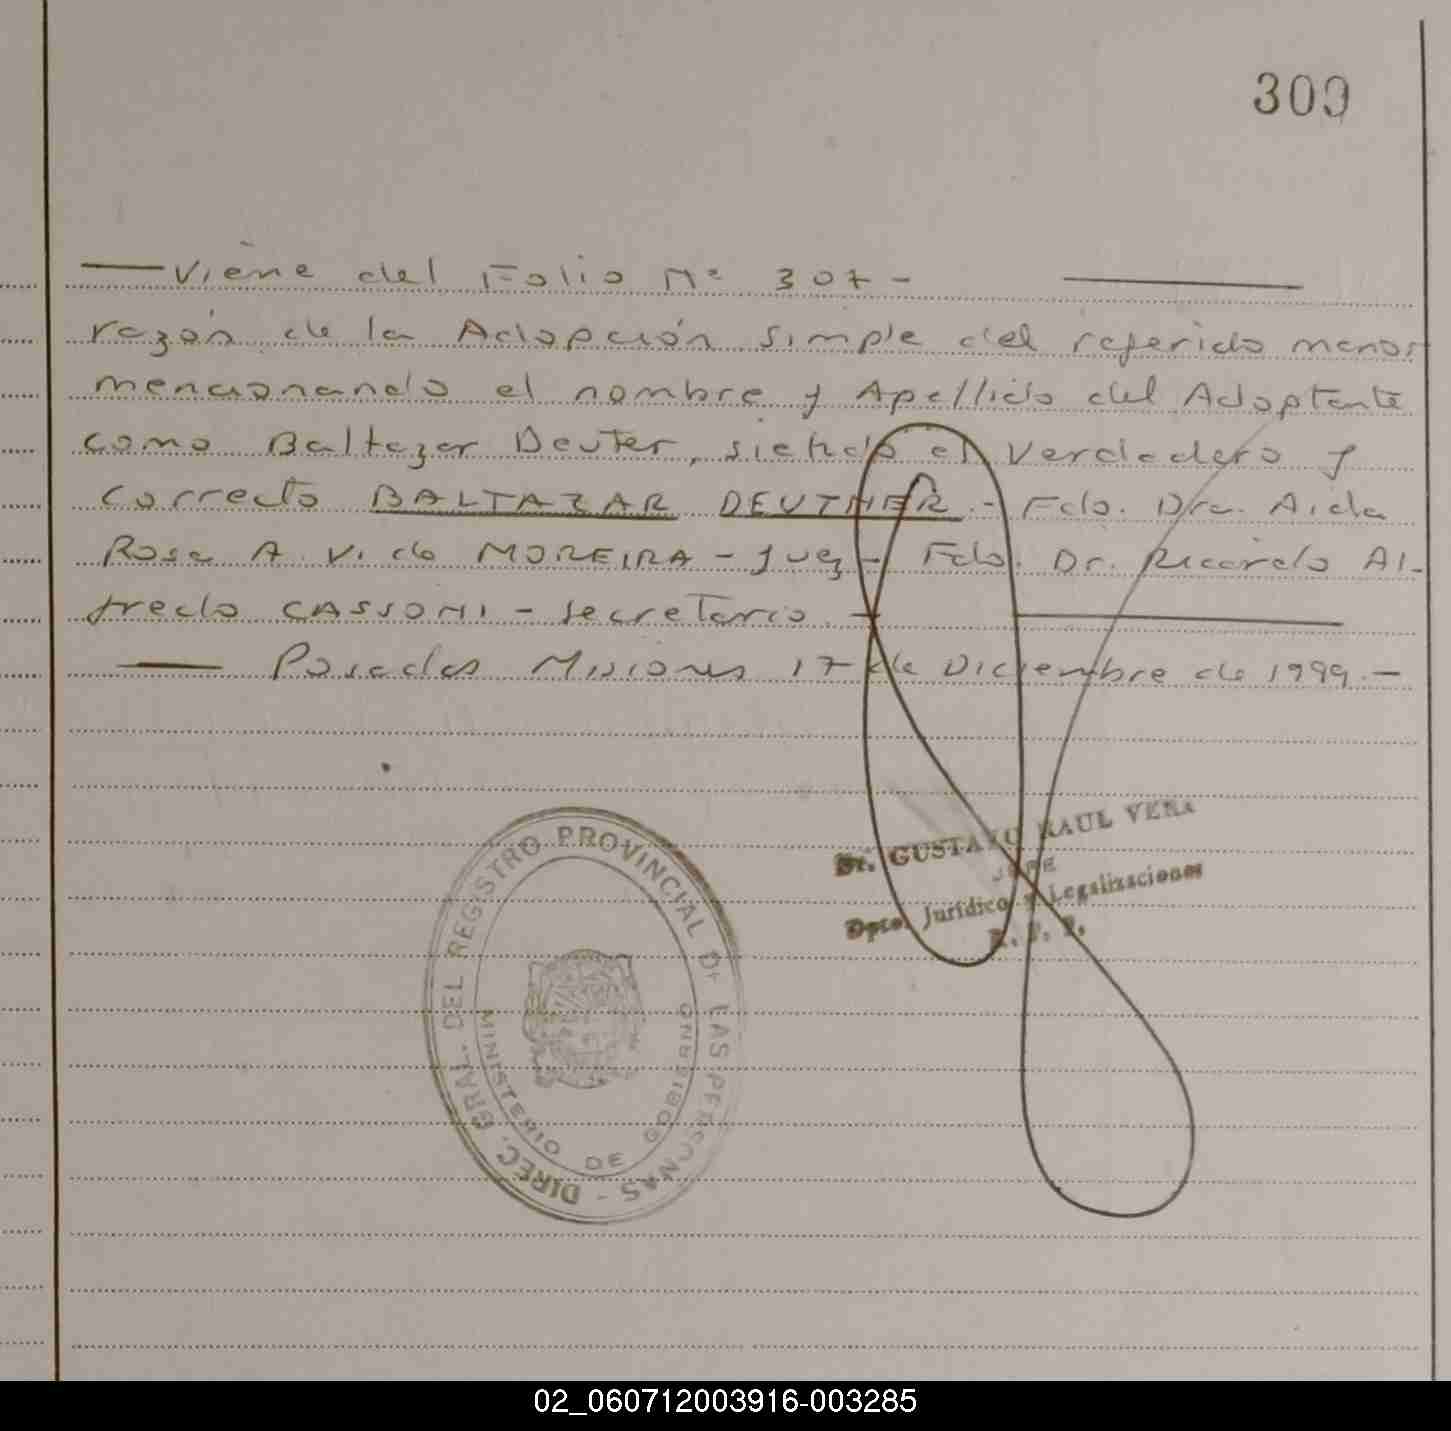 300
— Viene del Folio Nº 307 - —
razón de la Adopción simple del referido menor
mencionando el nombre y Apellido del Adoptante
como Baltazar Deuter, siendo el verdadero y
correcto BALTAZAR DEUTHER. - Fdo. Dra. Aida
Rosa A. V. de MOREIRA - Juez - Fdo. Dr. Ricardo Al-
fredo CASSONI - Secretario. —
— Posadas Misiones 17 de Diciembre de 1999. -
Dr. GUSTAVO RAUL VERA
JEFE
Dpto. Jurídico y Legalizaciones
R. P. P.
DIREC. GRAL. DEL REGISTRO PROVINCIAL DE LAS PERSONAS -
MINISTERIO DE GOBIERNO
02_060712003916-003285